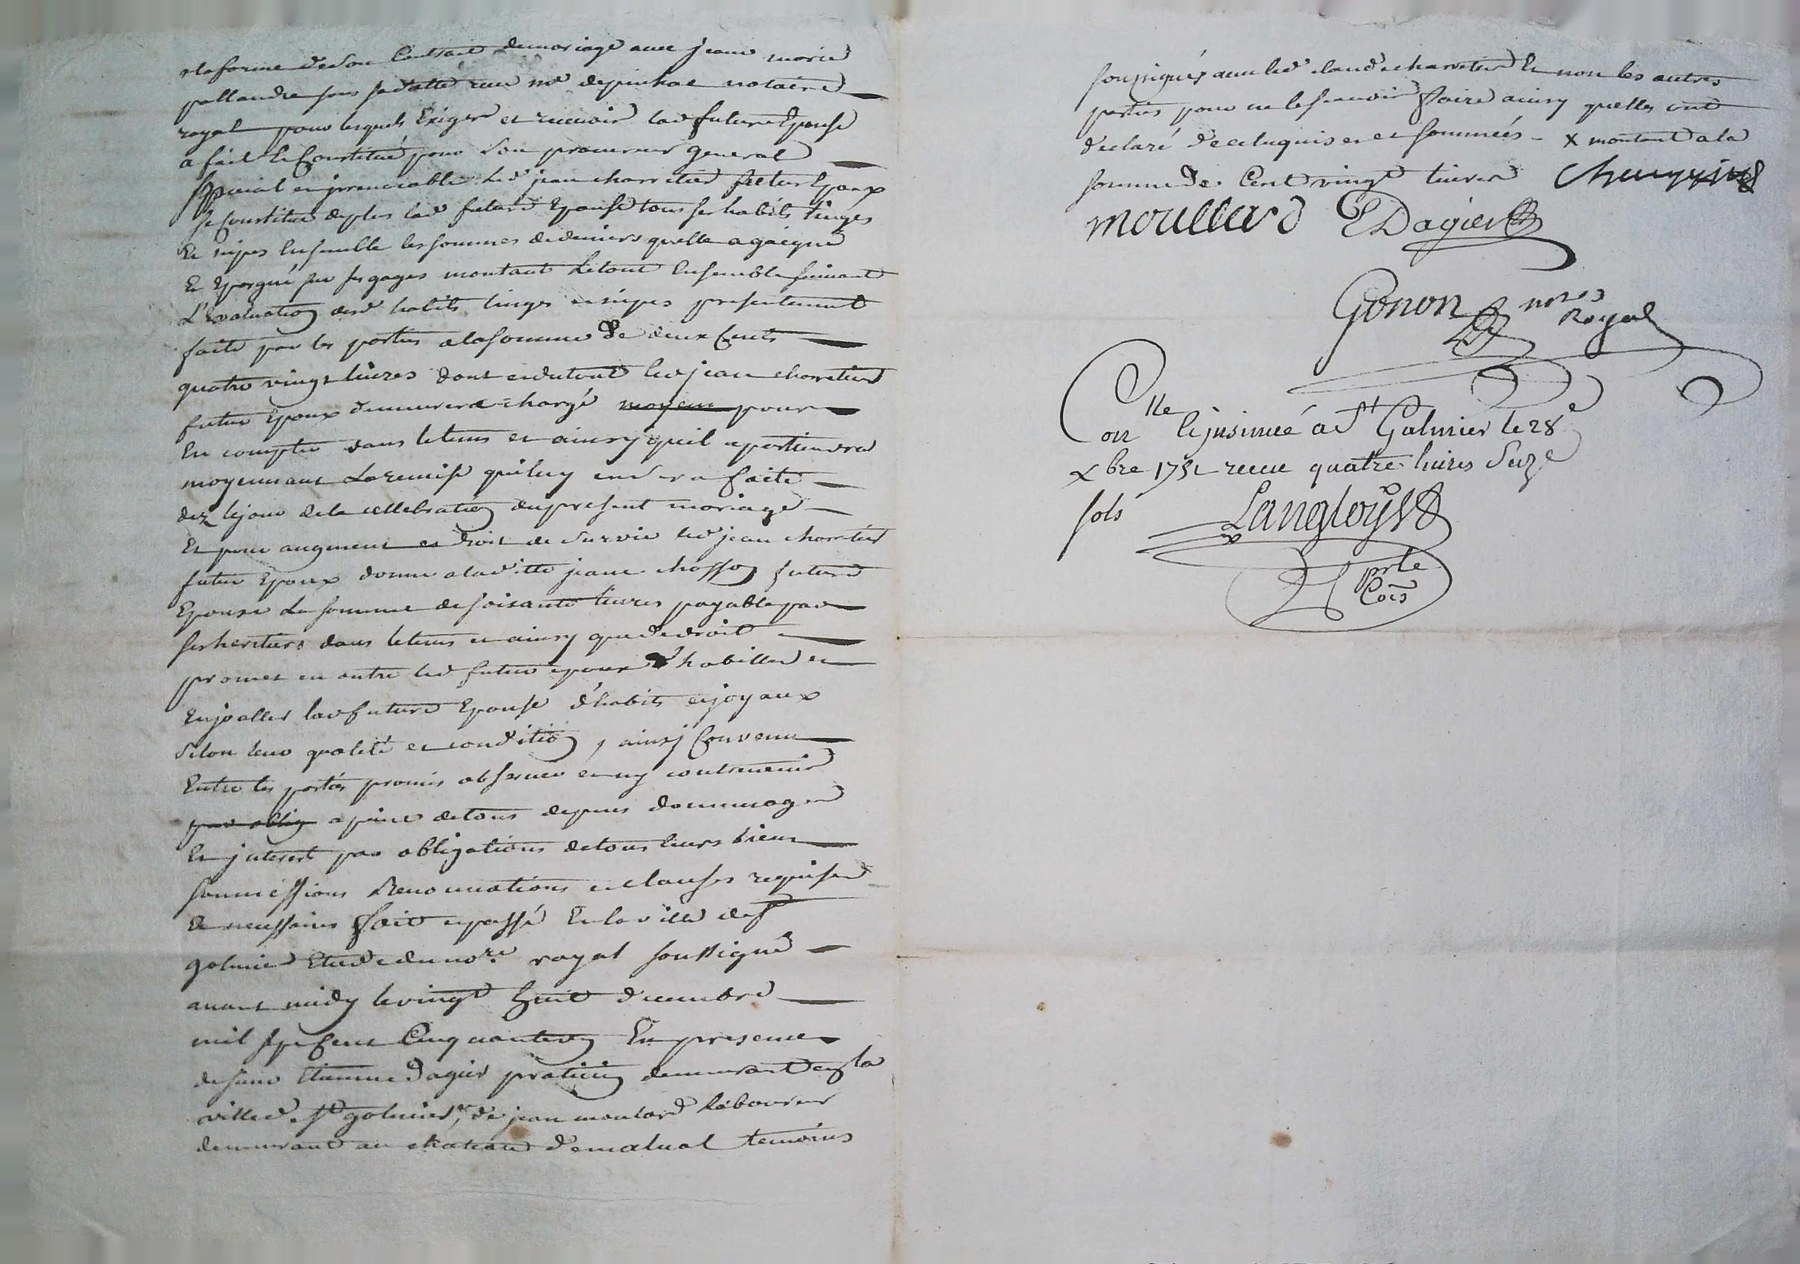 et a forme de son Contract de mariage avec jeane marie
pallandre sous sa datte receu me depinhac notaire
royal pour lesquels Exiger et recevoir lad future Epouse
a fait et Constitué pour son procureur general
special et jrrevocable led jean charretier futur Epoux
se Constitue de plus lad future Epouse tous ses habits linges
Et nipes Ensemble les sommes de deniers quelle a gaigné
Et Epargné sur ses gages montant le tout Ensemble suivant
L'Evaluation desd habits linges et nipes presentement
faite par les parties a la somme de deux Cents
quatre vingt livres dont endutout led jean charretier
futur Epoux demeurera chargé moyen pour
En compter dans le tems et ainsy quil apartiendra
moyennant La remise qui luy en sera faite
dez le jour de la cellebration du present mariage
Et pour augment et droit de survie led jean charretier
futur Epoux donne a lad jeane chosson future
Epouse La somme de soisante livres payable par
ses heritiers dans le tems et ainsy que de droit
promet en outre led futur epoux d'habiller et
Enjoaller lad future Epouse d'habits et joyaux
selon leur qualité et condition, ainsy Convenu
Entre les parties promis observer et ny contrevenir
par oblig a peine de tous depens dommages
Et jnterest par obligations de tous leurs biens
soumissions Renonciations et clauses requises
Et necessaires fait et passé En la ville de st
galmier Etude du nore royal soussigné
avant midy le vingt huit decembre
mil sept Cent Cinquante En presence
de sieur Etienne Dagier praticien demeurant en la
ville de st galmier, de jean moulard laboureur
demeurant au chateau temoins
soussignés avec led claude charretier Et non les autres
parties pour ne le scavoir faire ainsy quelles ont
declaré de ce enquises et sommées - x montant a la
somme de Cent vingt livres
moullard E Dagier
Gonon nore
Royal
Conlle et jnsinué a St Galmier le 28e
xbre 1751 receu quatre livres seize
sols Langloys
prle
Cois